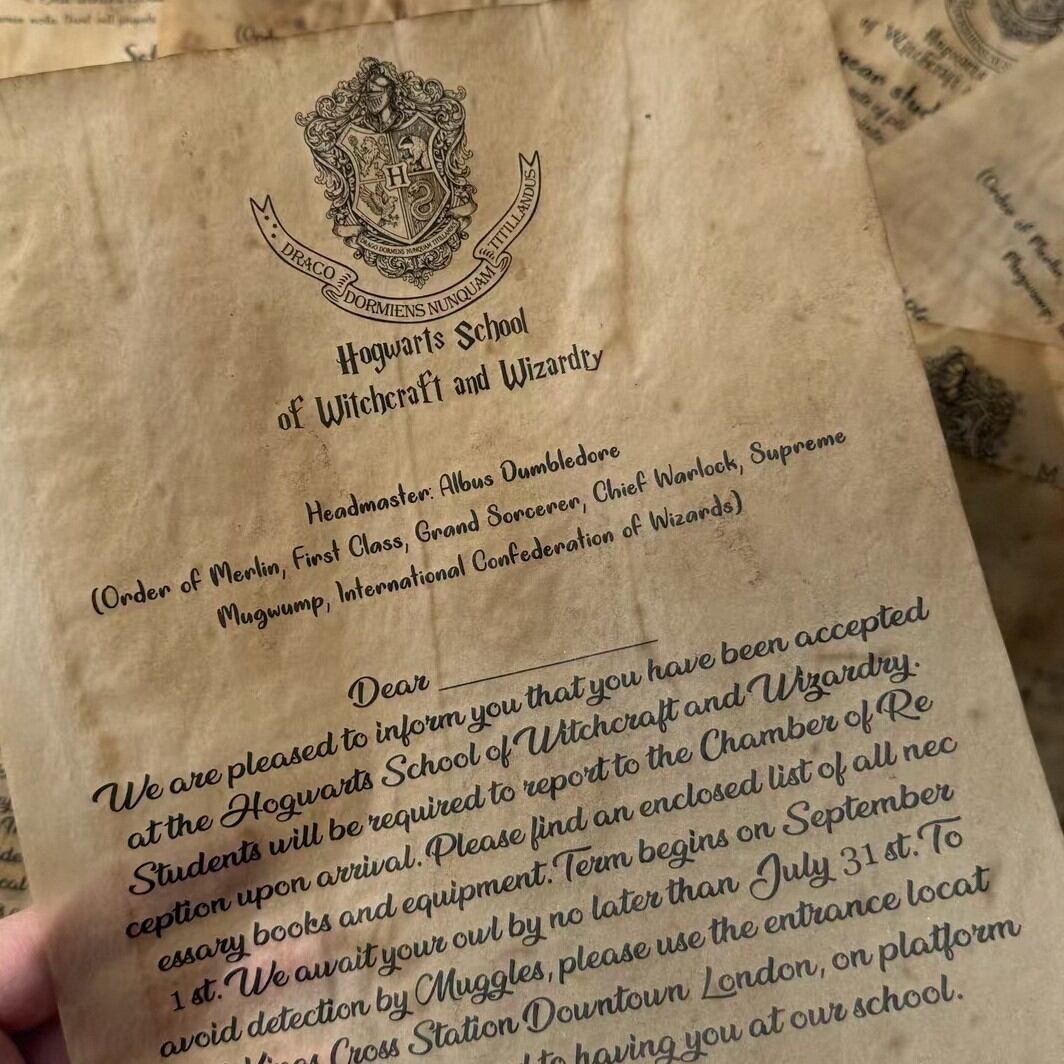 DRACO DORMIENS NUNQUAM TITILLANDUS
H
DRACO DORMIENS NUNQUAM TITILLANDUS
Hogwarts School
of Witchcraft and Wizardry
Headmaster: Albus Dumbledore
(Order of Merlin, First Class, Grand Sorcerer, Chief Warlock, Supreme
Mugwump, International Confederation of Wizards)
Dear
We are pleased to inform you that you have been accepted
at the Hogwarts School of Witchcraft and Wizardry.
Students will be required to report to the Chamber of Re
ception upon arrival. Please find an enclosed list of all nec
essary books and equipment. Term begins on September
1 st. We await your owl by no later than July 31 st. To
avoid detection by Muggles, please use the entrance locat
Kings Cross Station Downtown London, on platform
to having you at our school.
of Witchcraft
year
(Order of
Mugwump,